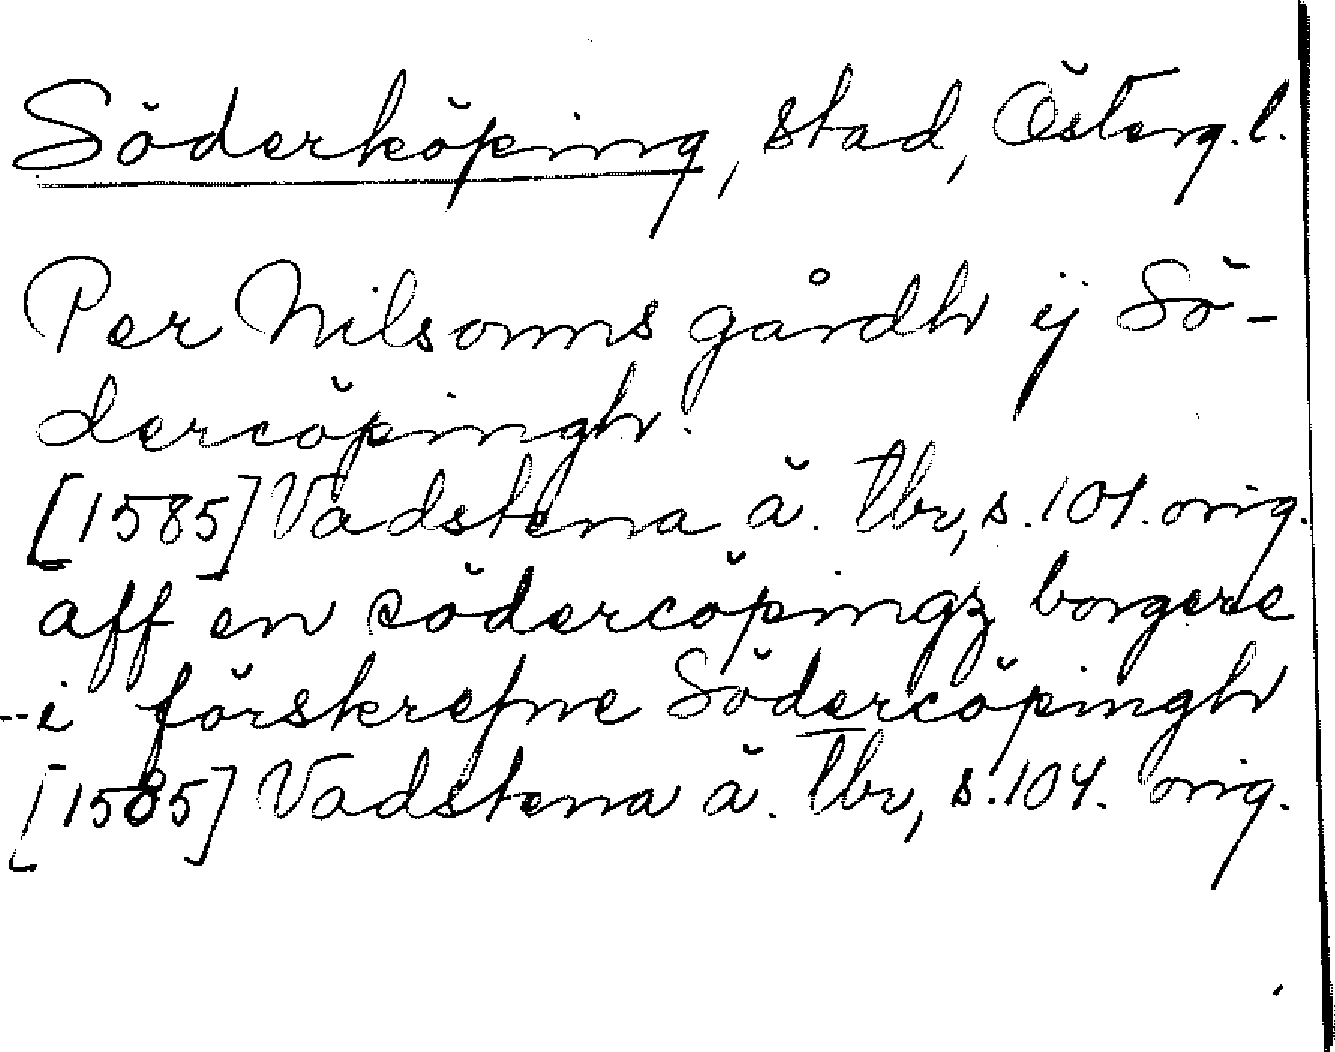 Söderköping, stad, Österg.l.
Per Nilsonns gårdh ij Sö-
dercöpingh.
[1585] Vadstena ä. tbr, s. 104. orig.
aff en södercöpingz borgere
-- i förskrefne Södercöpingh
[1585] Vadstena ä. tbr, s. 104. orig.